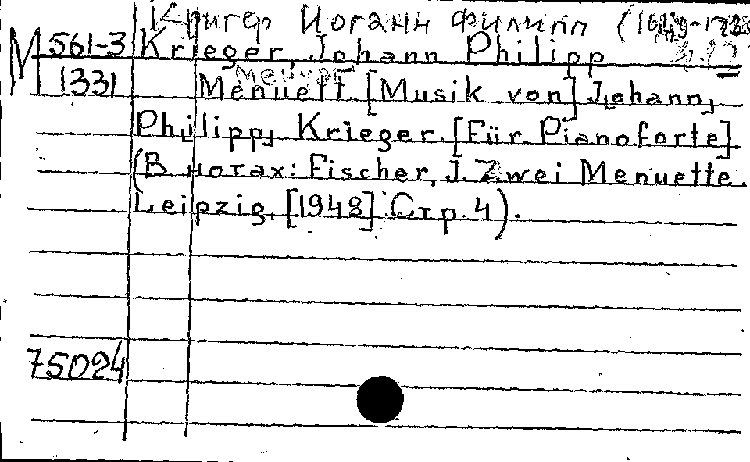 Кригер Иоганн Филипп
М 561-3 Krieger, Johann Philipp
1331 Менуэт
Menuett. [Musik von] Johann,
Philipp, Krieger. [Für Pianoforte].
(В нотах: Fischer, J. Zwei Menuette.
Leipzig, [1948] Стр. 4).
75024